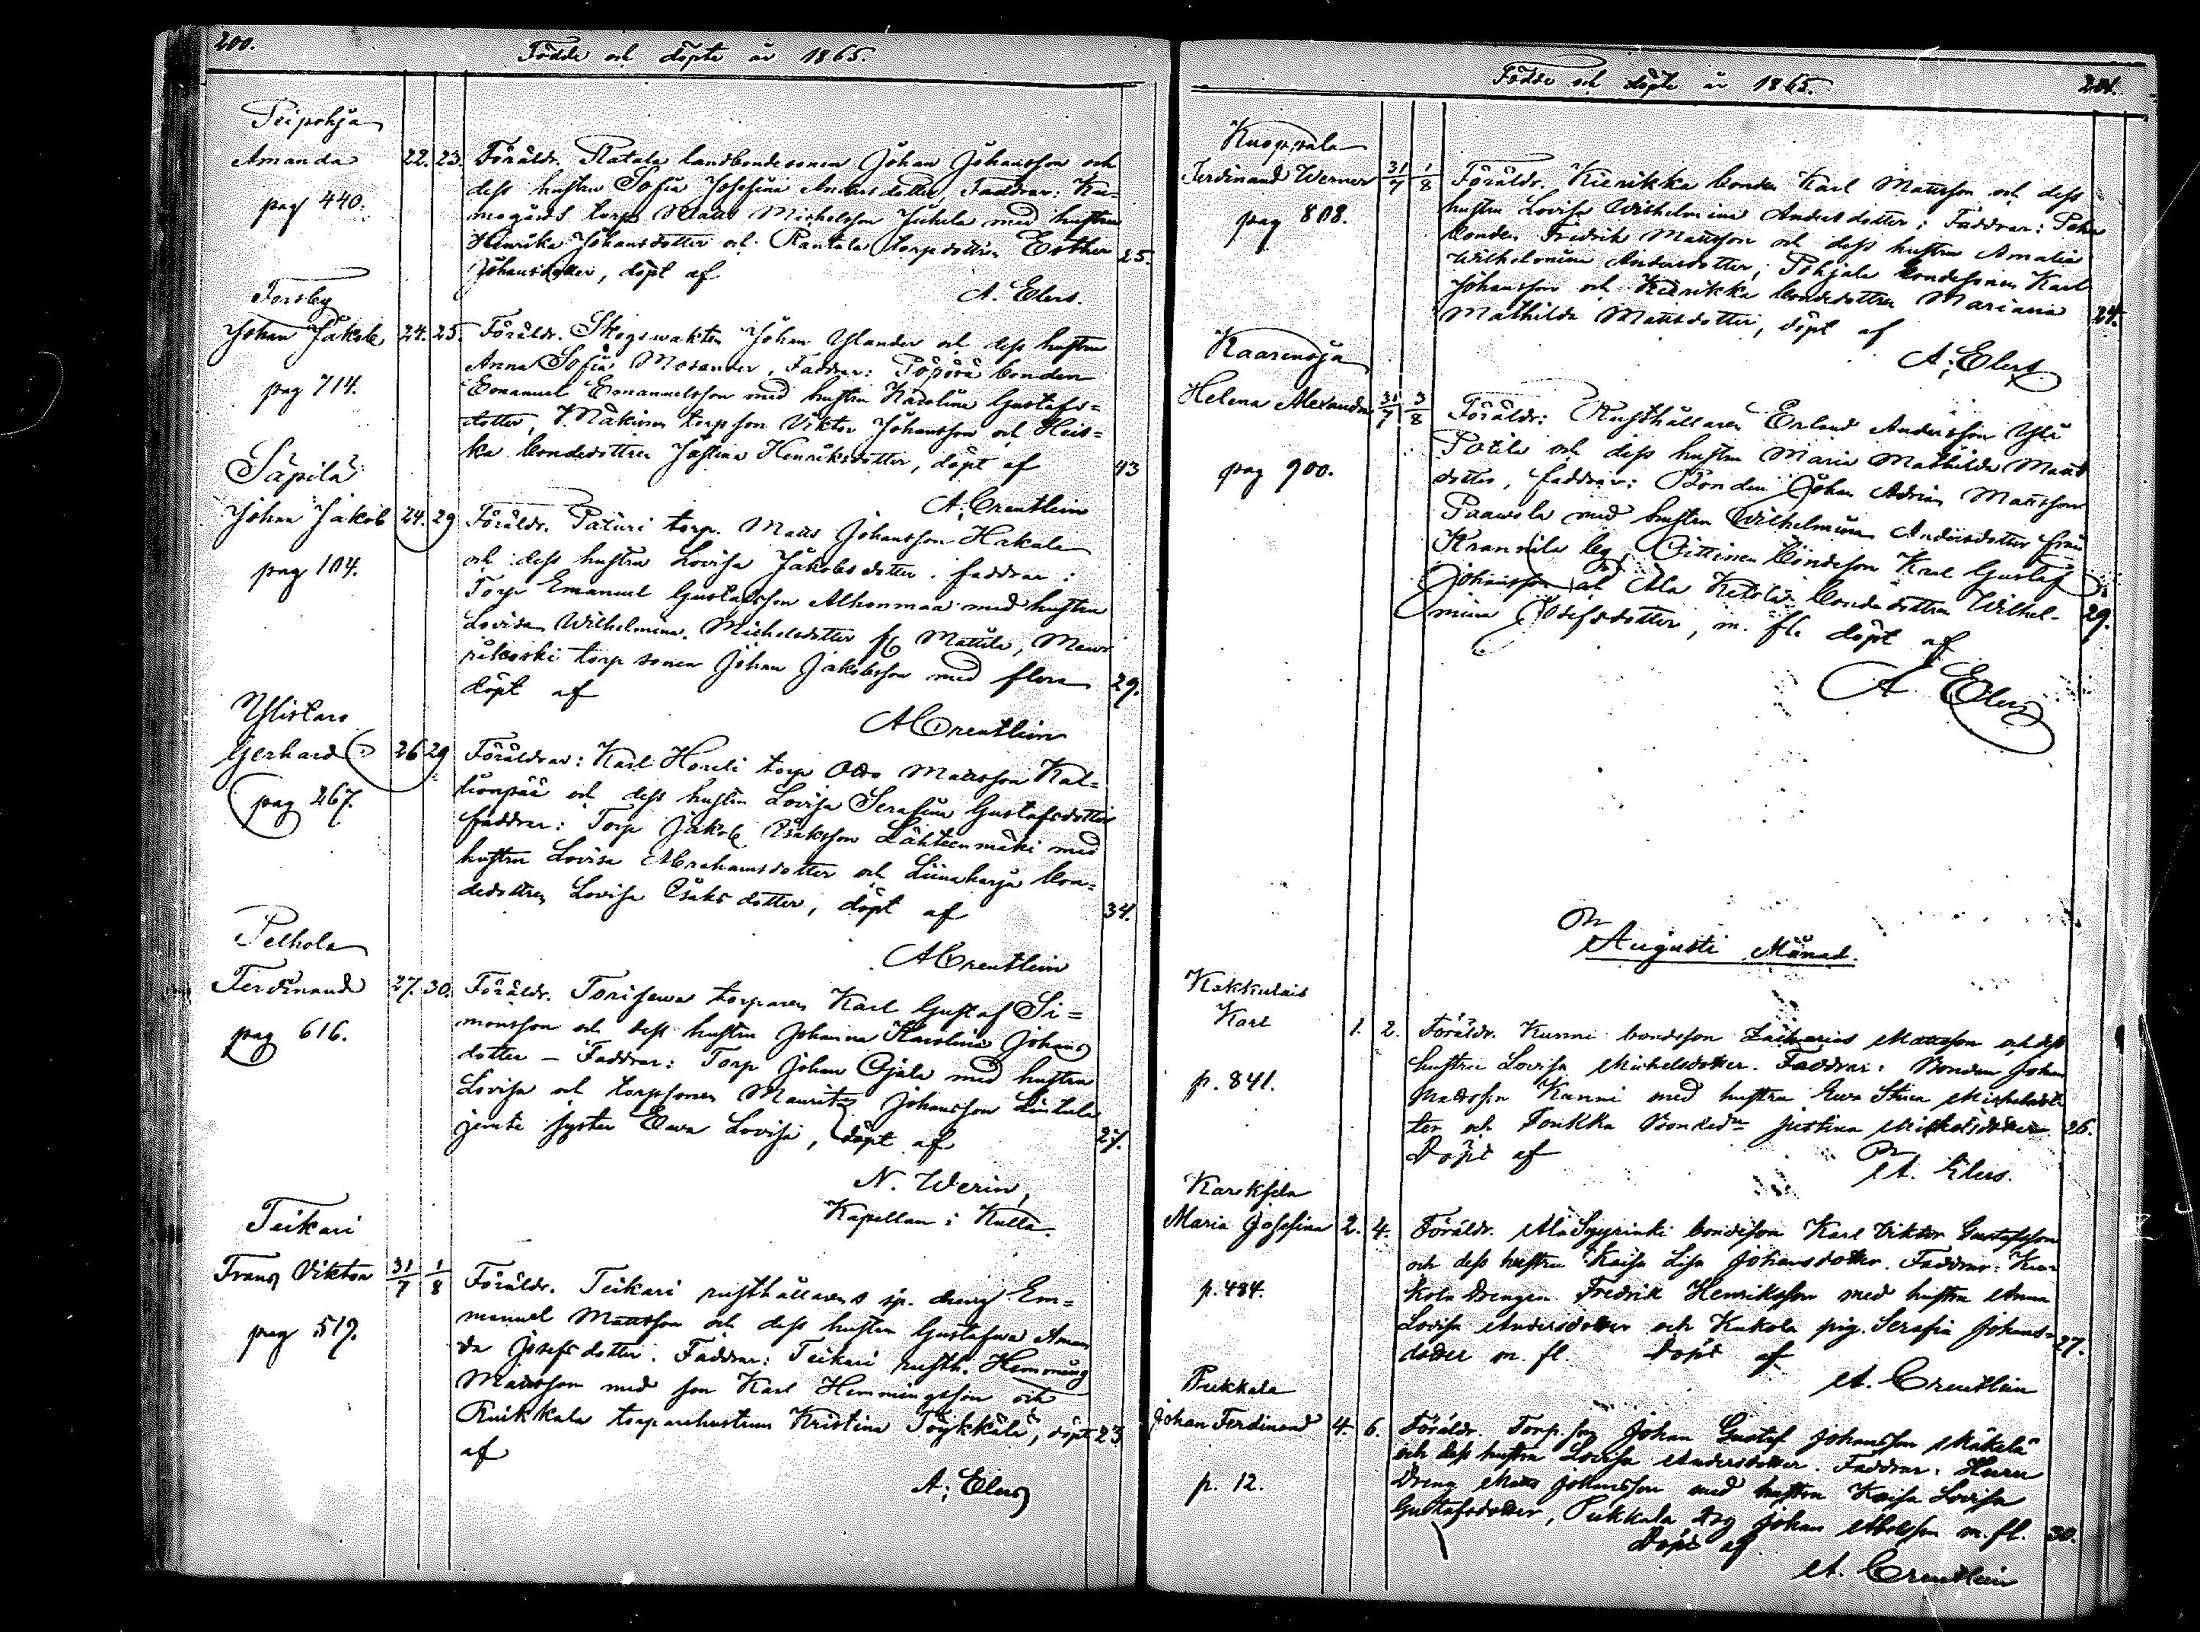 200.
Födde och döpte år 1865.
Peipohja
Amanda 22. 23. Föräldr. Ratala landbondesonen Johan Johansson och
pag 440. dess hustru Sofia Josefina Andersdotter, Faddrar: Ka-
negårds torp. Matts Michelsson Juhela med hustru
Henrika Johansdotter och Rantala torpdottren Esther
Johansdotter, döpt af 25.
A. Elers.
Forsby
Johan Jakob 24. 25. Föräldr. Skogswakten Johan Ylander och dess hustru
Anna Sofia Mosander, Faddrar: Pöpörä bonden
pag 714. Emanuel Emanuelsson med hustru Karolina Gustafs-
dotter, Mäkinen torpson Viktor Johansson och Heis-
ka bondedottren Justina Henriksdotter, döpt af 43
A. Crentlein
Säpilä
Johan Jakob 24. 29 Föräldr. Paturi torp. Matts Johansson Hakala
och dess hustru Lovisa Jakobsdotter. faddrar:
pag 104. Torp Emanuel Gustafsson Alhonmaa med hustru
Lovisa Wilhelmina Michelsdotter Mattila,
torp sonen Johan Jakobsson med flera 29.
döpt af
A Crentlein
Ylistaro
Gerhard 26 29 Föräldrar: Karl Honeli torp Otto Mattsson Kal-
lionpää och dess hustru Lovisa Serafina Gustafsdotter
pag 267. faddrar: Torp Jakob Isaksson Lähteenmäki med
hustru Lovisa Abrahamsdotter och Liinaharja bon-
dedottren Lovisa Isaksdotter, döpt af 34.
A Crentlein
Pelhola
Ferdinand 27. 30. Föräldr. Torisewa torparen Karl Gustaf Si-
monsson och dess hustru Johanna Karolina Johans
pag 616. dotter – Faddrar: Torp Johan Ojala med hustru
Lovisa och torpsonen Mauritz Johansson Lintula
jemte syster Ewa Lovisa, döpt af 27.
N. Werin,
Kapellan i Kulla.
Teikari
Frans Viktor 31/7 1/8 Föräldr. Teikari rusthållarens sp. dreng Em-
manuel Mattsson och dess hustru Gustafwa Aman
pag 519. da Josefsdotter. Faddrar: Teikari rusth. Hemming
Mattsson med son Karl Hemmingsson och
Ruikkala torparehustrun Kristina Töykkälä, döpt 23
af
A. Elers
Födde och döpte år 1865. 201.
Kuoppala
Ferdinand Werner 31/7 1/8 Föräldr. Kierikka bonden Karl Mattsson och dess
pag 808. hustru Lovisa Wilhelmina Andersdotter; Faddrar:
bonden Fredrik Mattsson och dess hustru Amalia
Wilhelmina Andersdotter; Pohjala bondesonen Karl
Johansson och Kierikka bondedottren Mariana
Mathilda Mattsdotter, döpt af 24.
A. Elers
Kaarenoja
Helena Alexandra 31/7 3/8 Föräldr: Rusthållaren Erland Andersson Yli
Potila och dess hustru Maria Mathilda Matts
pag 900. dotter, faddrar: Bonden Johan Adrian Mattsson
Paawola med hustru Wilhelmina Andersdotter från
Krannila by, Pittinen bondeson Karl Gustaf
Johansson och Ala Ketola bondedottren Wilhel-
mina Josefsdotter, m. fl. döpt af 29.
A Elers
Augusti Månad.
Kakkulais
Karl 1. 2. Föräldr. Kunni bondeson Zacharias Mattsson och dess
hustru Lovisa Michelsdotter. Faddrar: Bonden Johan
p. 841. Mattsson Kanni med hustru Ewa Stina Michelsdot-
ter och Foukka Bondedr Justina Michelsdotter. 26.
Döpt af
A. Elers.
Karskfela
Maria Josefina 2. 4. Föräldr. Ala Syyrinki bondeson Karl Viktor Gustafsson
och dess hustru Kaisa Lisa Johansdotter. Faddrar: Ku-
p. 484. kola Drengen Fredrik Henriksson med hustru Anna
Lovisa Andersdotter och Kukola pig. Serafia Johans-
dotter m. fl. Döpt af 27.
A. Crentlein
Pukkala
Johan Ferdinand 4. 6. Föräldr. Torp son Johan Gustaf Johansson Mäkelä
och dess hustru Lovisa Andersdotter. Faddrar:
p. 12. Dreng Matts Johansson med hustru Kaisa Lovisa
Gustafsdotter, Pukkala drg Johan Abelsson m. fl. 30.
Döpt af
A. Crentlein